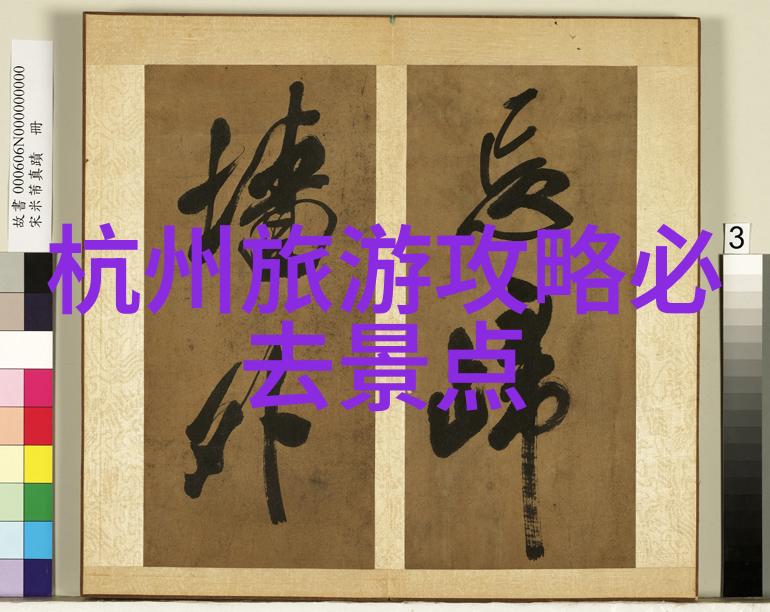 杭州旅游攻略必
去景点
歸
外
故書 000606N000000000
宋米芾真蹟 冊
3